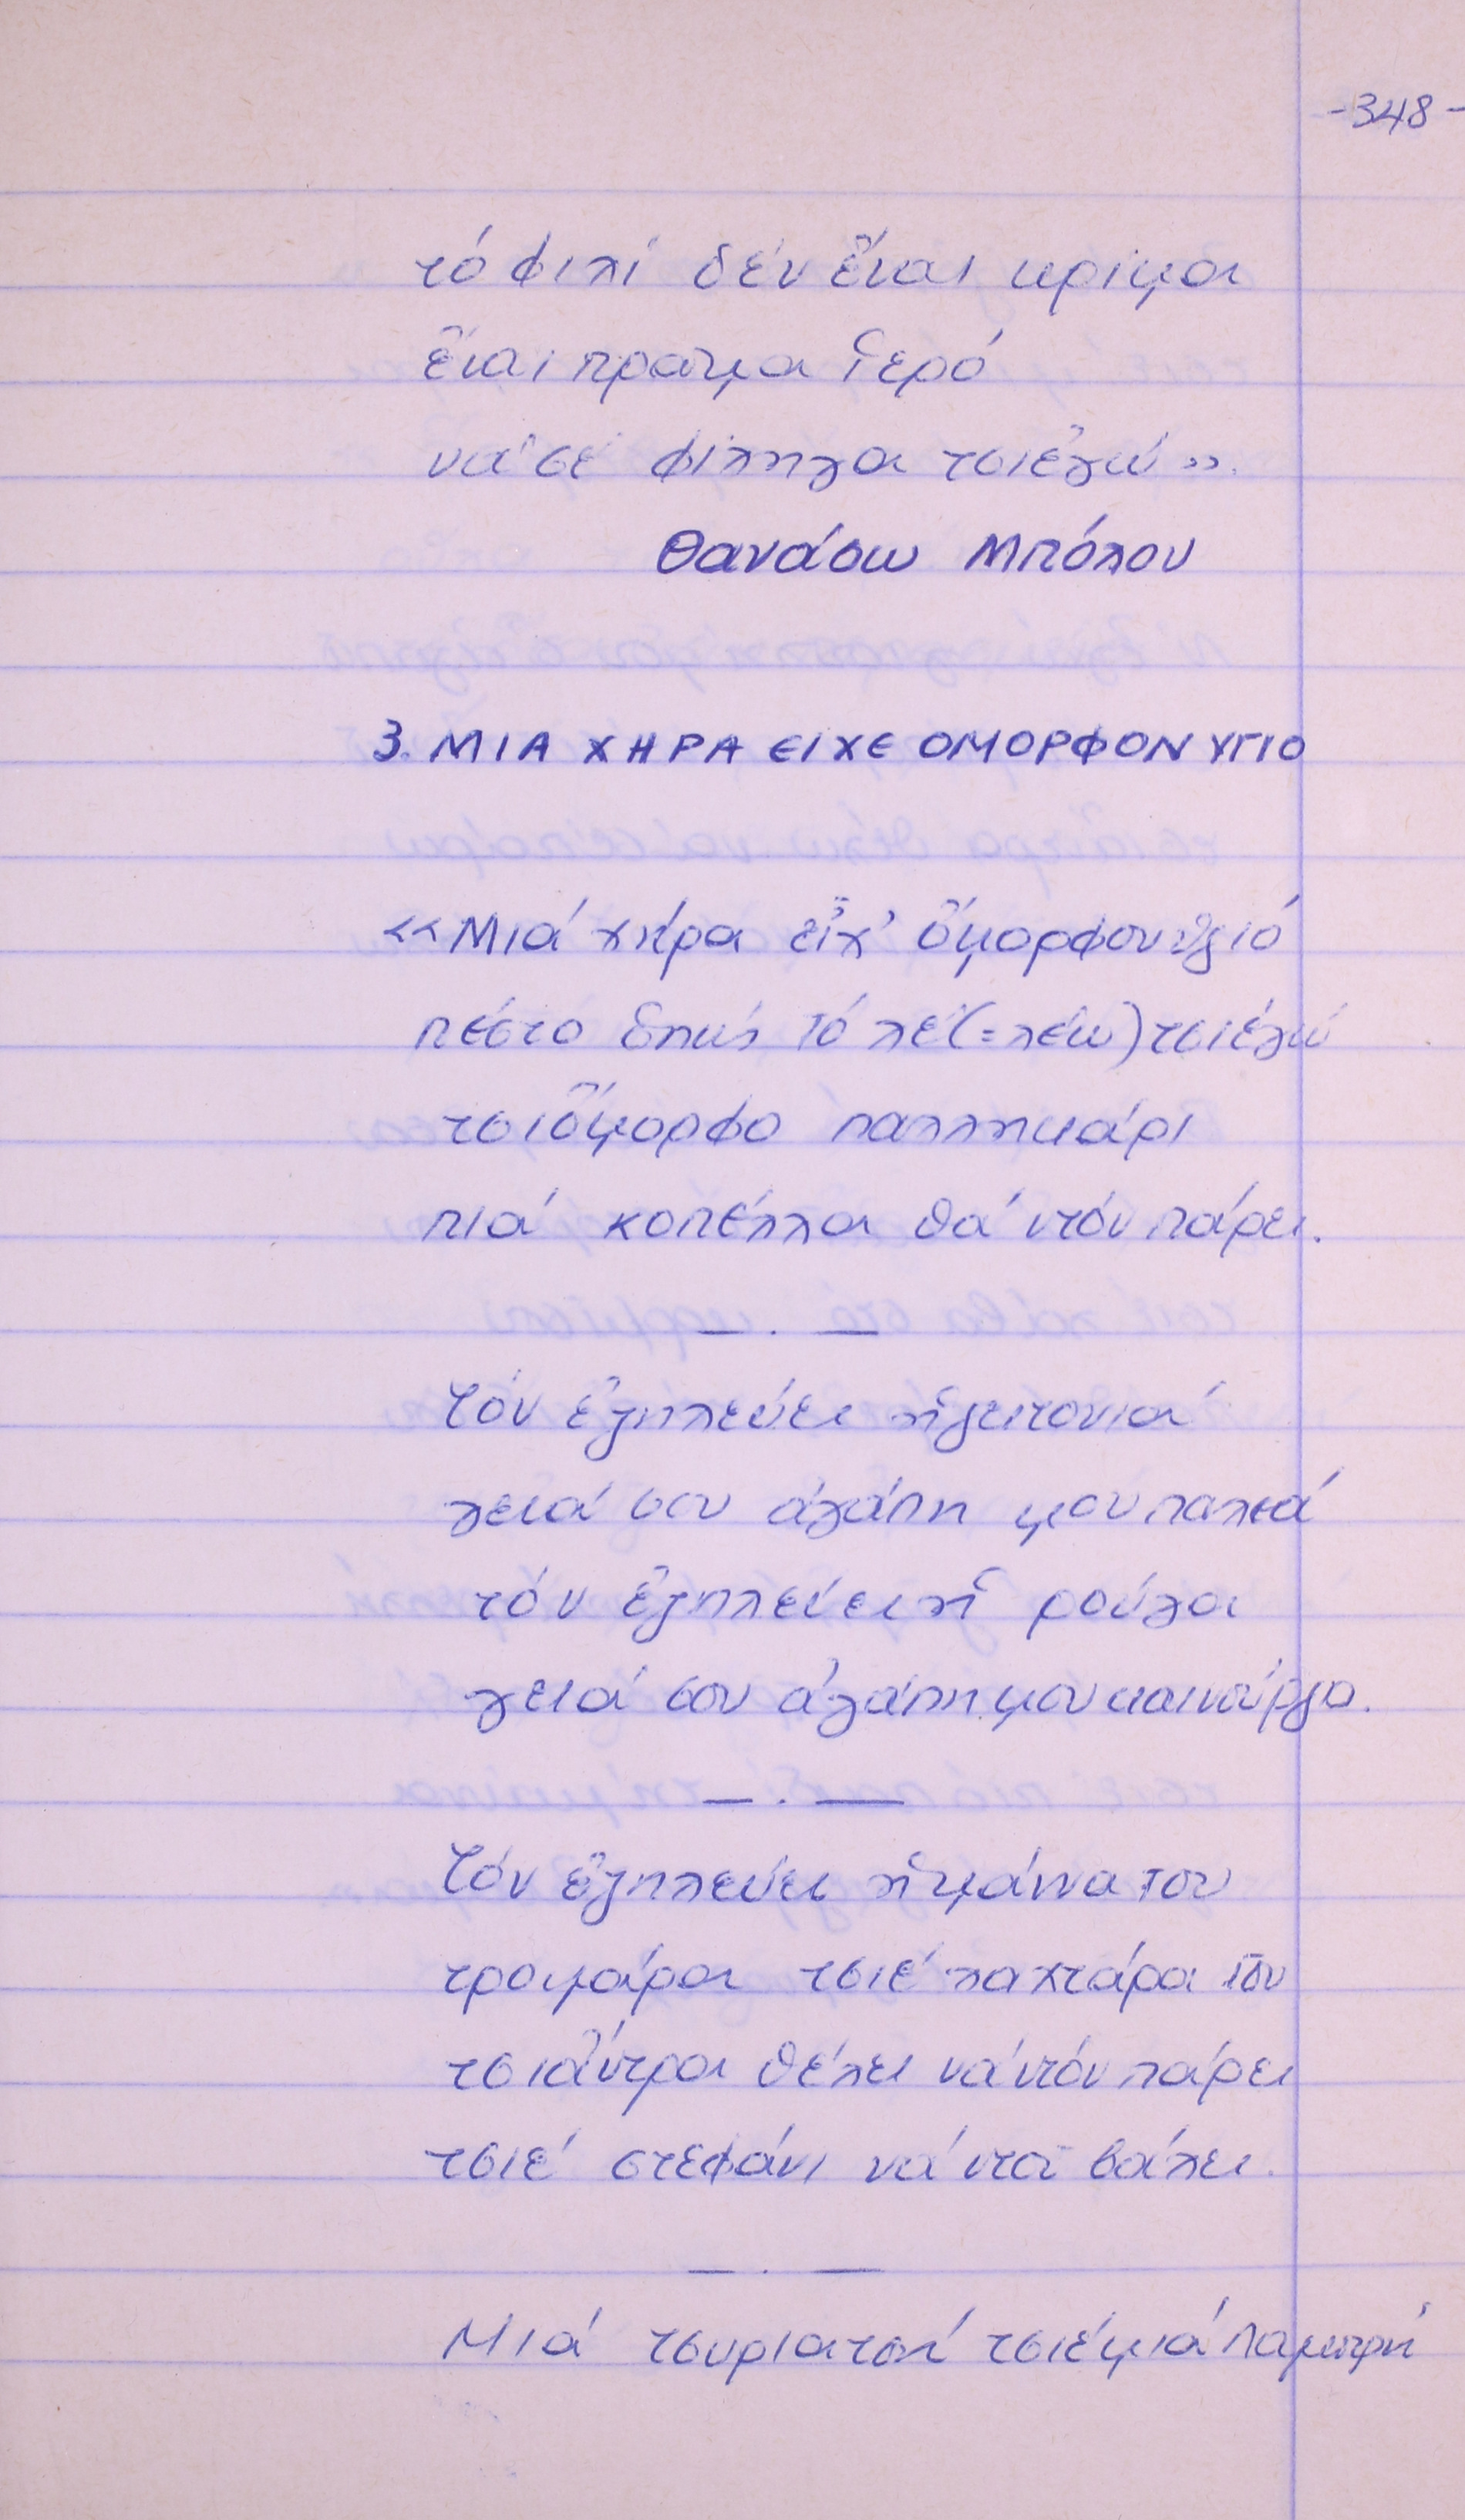 -348-
τό φιλί δέν εἶναι κρίμα
εἶναι πρᾶμα ἱερό
νά σέ φίληγα τσιἐγώ».
Θανάσω Μπόλου
3. ΜΙΑ ΧΗΡΑ ΕΙΧΕ ΟΜΟΡΦΟΝ ΥΓΙΟ
«Μιά χήρα εἶχ' ὄμορφον ὑγιό
πέστο ὅπως τό λέ(=λέω) τσιἐγώ
τσιὄμορφο παλληκάρι
πιά κοπέλλα θά ντόν πάρει.
— . —
Τόν ἐζηλεύει ἡ γειτονιά
γειά σου ἀγάπη μου παλιά
τόν ἐζηλεύει ἡ ρούγα
γειά σου ἀγάπη μου καινούργια.
— . —
Τόν ἐζηλεύει ἡ μάννα του
τρομάρα τσιέ λαχτάρα του
τσιἄντρα θέλει νά ντόν πάρει
τσιέ στεφάνι νά ντοῦ βάλει.
— . —
Μιά τσυριατσή τσιέ μιά Λαμπρή